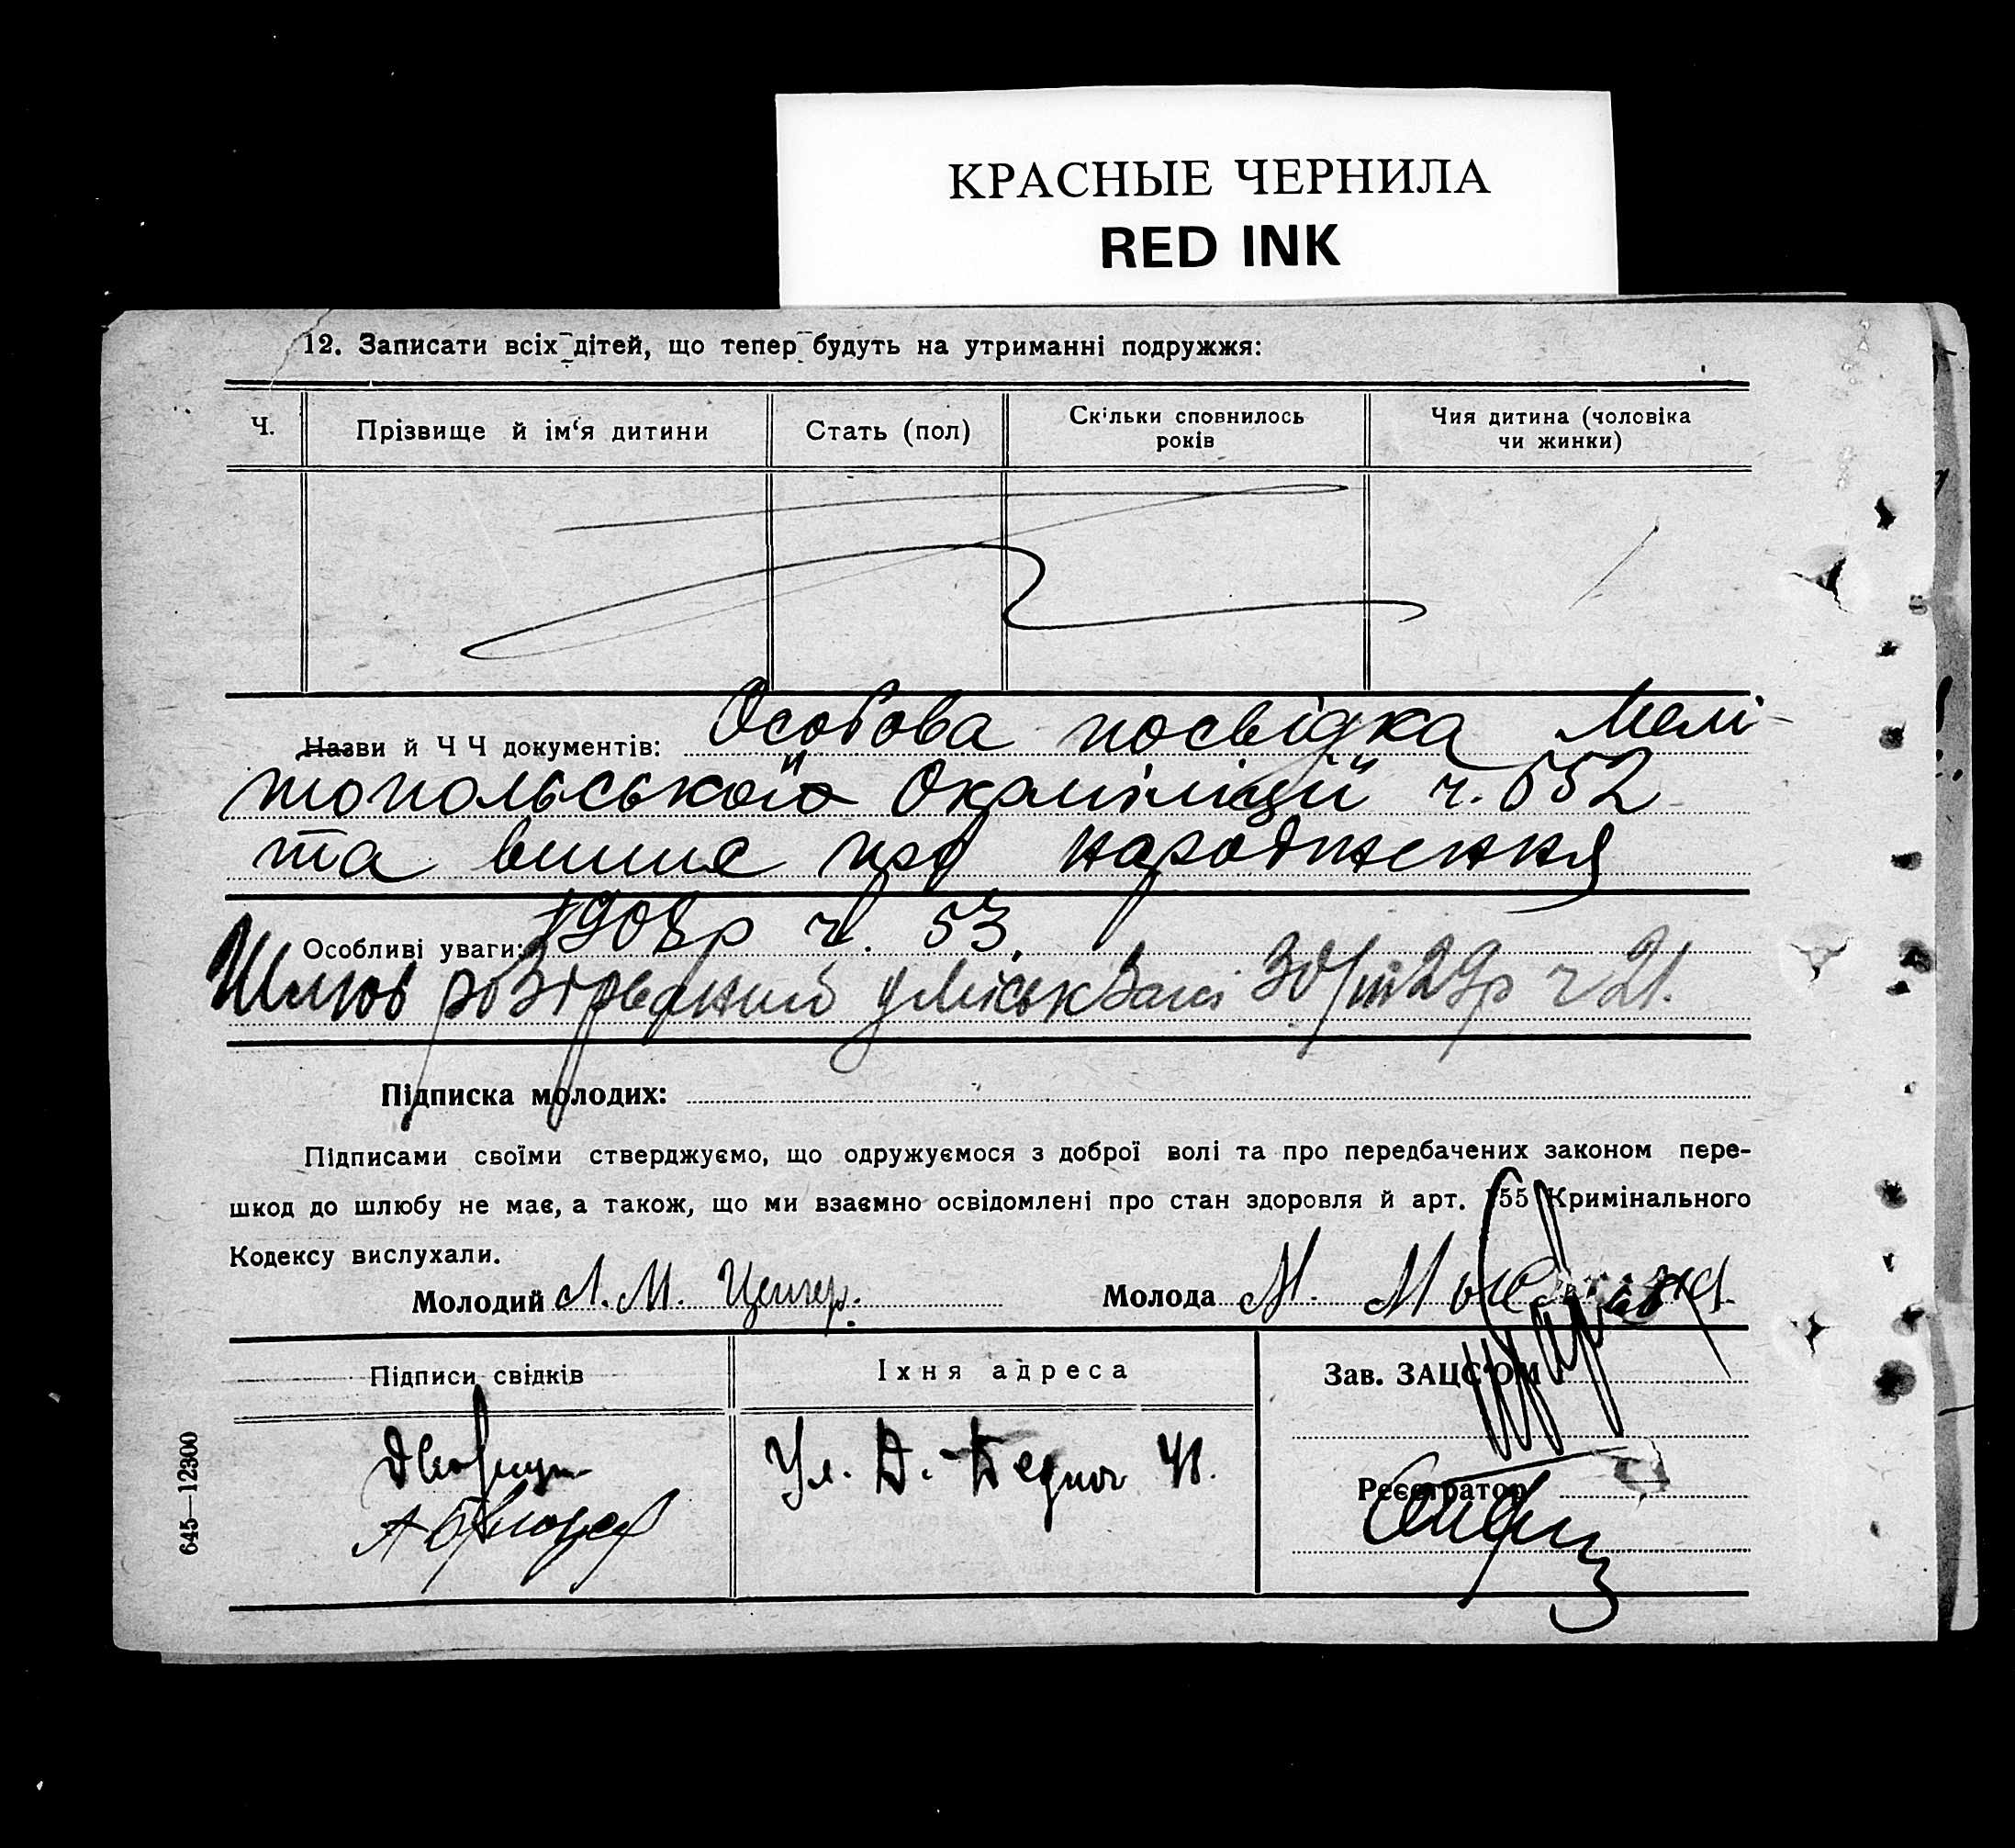 КРАСНЫЕ ЧЕРНИЛА
RED INK
12. Записати всіх дітей, що тепер будуть на утриманні подружжя:
Ч.
Прізвище й ім‘я дитини
Стать (пол)
Скільки сповнилось
років
Чия дитина (чоловіка
чи жинки)
Назви й Ч Ч документів: Особова посвідка Мелі
топольської Окрміліції ч. 552
та випис про народження
1908р ч. 53.
Особливі уваги:
Шлюб розірваний у міськЗагсі 30/III 29р ч 21.
Підписка молодих:
Підписами своїми стверджуємо, що одружуємося з доброї волі та про передбачених законом пере-
шкод до шлюбу не має, а також, що ми взаємно освідомлені про стан здоровля й арт. 155 Кримінального
Кодексу вислухали.
Молодий Л. М. Цейгер.
Молода М.
Підписи свідків
Іхня адреса
Зав. ЗАЦС‘ОМ
Ул. Д. Бедного 41.
Реєстратор
645—12300